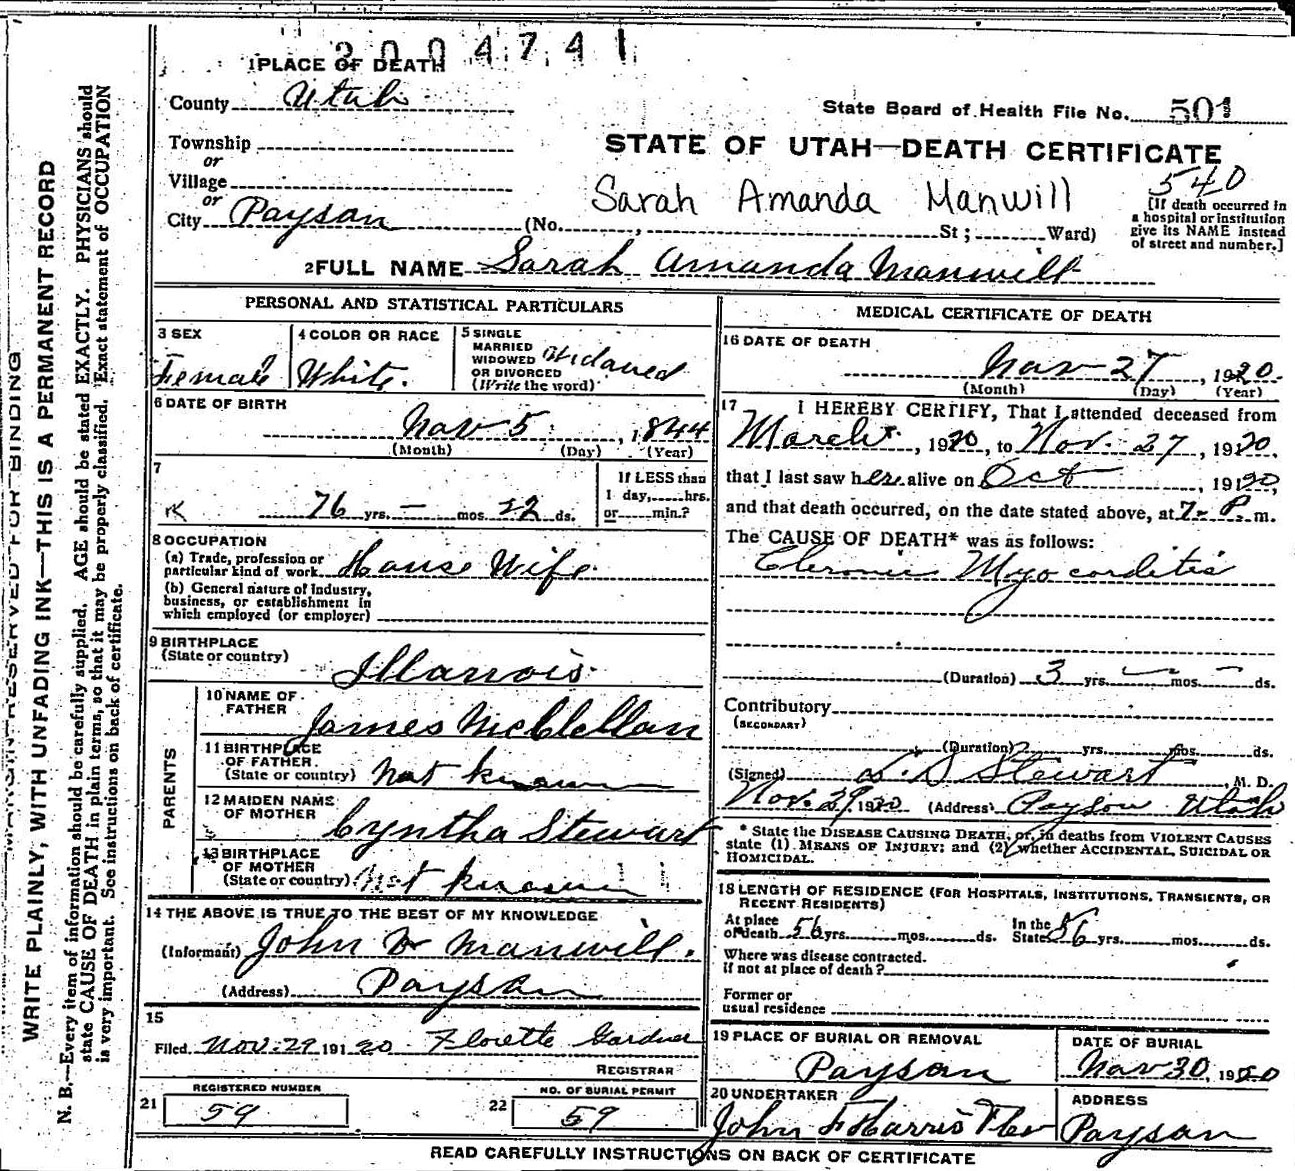 300474
1 PLACE OF DEATH
County Utah
State Board of Health File No. 501
Township
or
Village
or
City Payson (No. , St ; Ward)
STATE OF UTAH—DEATH CERTIFICATE
540
Sarah Amanda Manwill
[If death occurred in
a hospital or institution
give its NAME instead
of street and number.]
2 FULL NAME Sarah Amanda Manwill
MARGIN RESERVED FOR BINDING
WRITE PLAINLY, WITH UNFADING INK—THIS IS A PERMANENT RECORD
N. B.—Every item of information should be carefully supplied. AGE should be stated EXACTLY. PHYSICIANS should
state CAUSE OF DEATH in plain terms, so that it may be properly classified. Exact statement of OCCUPATION
is very important. See instructions on back of certificate.
PERSONAL AND STATISTICAL PARTICULARS
3 SEX
Female
4 COLOR OR RACE
White.
5 SINGLE
MARRIED
WIDOWED
OR DIVORCED
(Write the word)
Widowed
6 DATE OF BIRTH
Nov 5 , 1844
(Month) (Day) (Year)
7
76 yrs. — mos. 22 ds.
If LESS than
1 day, hrs.
or min.?
8 OCCUPATION
(a) Trade, profession or
particular kind of work House Wife
(b) General nature of Industry,
business, or establishment in
which employed (or employer)
9 BIRTHPLACE
(State or country)
Illanois
PARENTS
10 NAME OF
FATHER
James McClellan
11 BIRTHPLACE
OF FATHER.
(State or country) Not known
12 MAIDEN NAME
OF MOTHER
Cyntha Stewart
13 BIRTHPLACE
OF MOTHER
(State or country) Not known
14 THE ABOVE IS TRUE TO THE BEST OF MY KNOWLEDGE
(Informant) John W Manwill.
(Address) Payson
15
Filed Nov. 29 1920 Florette Gardner
REGISTRAR
21 REGISTERED NUMBER
59
22 NO. OF BURIAL PERMIT
59
MEDICAL CERTIFICATE OF DEATH
16 DATE OF DEATH
Nov 27 , 1920.
(Month) (Day) (Year)
17 I HEREBY CERTIFY, That I attended deceased from
March , 1920, to Nov. 27 , 1920.
that I last saw her alive on Oct , 1920,
and that death occurred, on the date stated above, at 7- P. m.
The CAUSE OF DEATH* was as follows:
Chronic Myocarditis
(Duration) 3 yrs. — mos. — ds.
Contributory
(SECONDARY)
(Duration) yrs. mos. ds.
(Signed) Stewart , M. D.
Nov. 29 1920 (Address) Payson Utah
* State the DISEASE CAUSING DEATH, or, in deaths from VIOLENT CAUSES
state (1) MEANS OF INJURY; and (2) whether ACCIDENTAL, SUICIDAL OR
HOMICIDAL.
18 LENGTH OF RESIDENCE (FOR HOSPITALS, INSTITUTIONS, TRANSIENTS, OR
RECENT RESIDENTS)
At place
of death 56 yrs. mos. ds.
In the
State 56 yrs. mos. ds.
Where was disease contracted.
if not at place of death?
Former or
usual residence
19 PLACE OF BURIAL OR REMOVAL
Payson
DATE OF BURIAL
Nov 30, 1920
20 UNDERTAKER
John F Harris
ADDRESS
Payson
READ CAREFULLY INSTRUCTIONS ON BACK OF CERTIFICATE